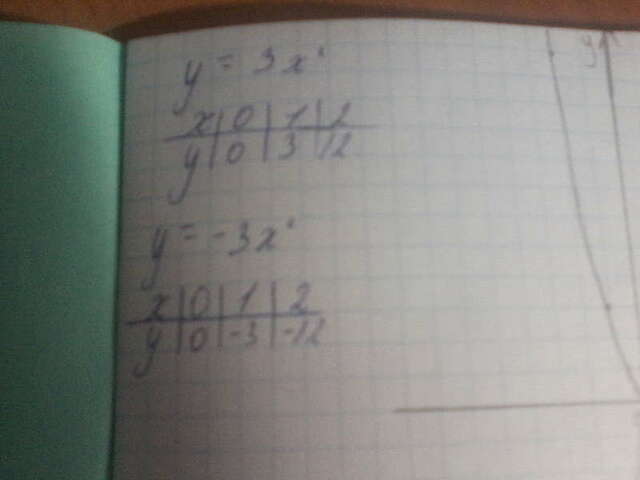 y = 3x²
x | 0 | 1 | 2
y | 0 | 3 | 12
y = -3x²
x | 0 | 1 | 2
y | 0 | -3 | -12
y